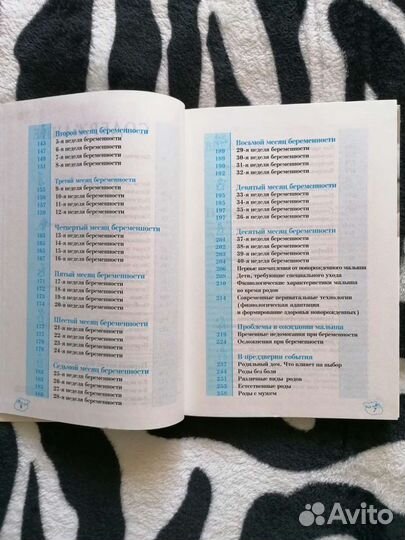 Второй месяц беременности
143 5-я неделя беременности
147 6-я неделя беременности
149 7-я неделя беременности
151 8-я неделя беременности
Третий месяц беременности
155 9-я неделя беременности
10-я неделя беременности
11-я неделя беременности
159 12-я неделя беременности
Четвертый месяц беременности
163 13-я неделя беременности
14-я неделя беременности
15-я неделя беременности
16-я неделя беременности
Пятый месяц беременности
171 17-я неделя беременности
18-я неделя беременности
19-я неделя беременности
174 20-я неделя беременности
Шестой месяц беременности
177 21-я неделя беременности
22-я неделя беременности
23-я неделя беременности
24-я неделя беременности
Седьмой месяц беременности
25-я неделя беременности
26-я неделя беременности
27-я неделя беременности
28-я неделя беременности
Восьмой месяц беременности
189 29-я неделя беременности
30-я неделя беременности
31-я неделя беременности
192 32-я неделя беременности
Девятый месяц беременности
195 33-я неделя беременности
34-я неделя беременности
35-я неделя беременности
197 36-я неделя беременности
Десятый месяц беременности
201 37-я неделя беременности
38-я неделя беременности
39-я неделя беременности
204 40-я неделя беременности
206 Первые впечатления от новорожденного малыша
208 Дети, требующие специального ухода
210 Физиологические характеристики малыша
во время родов
214 Современные перинатальные технологии
(физиологическая адаптация
и формирование здоровья новорожденных)
Проблемы в ожидании малыша
219 Временные недомогания при беременности
224 Осложнения при беременности
В преддверии события
237 Родильный дом. Что влияет на выбор
244 Роды без боли
251 Различные виды родов
253 Естественные роды
258 Роды с мужем
Avito